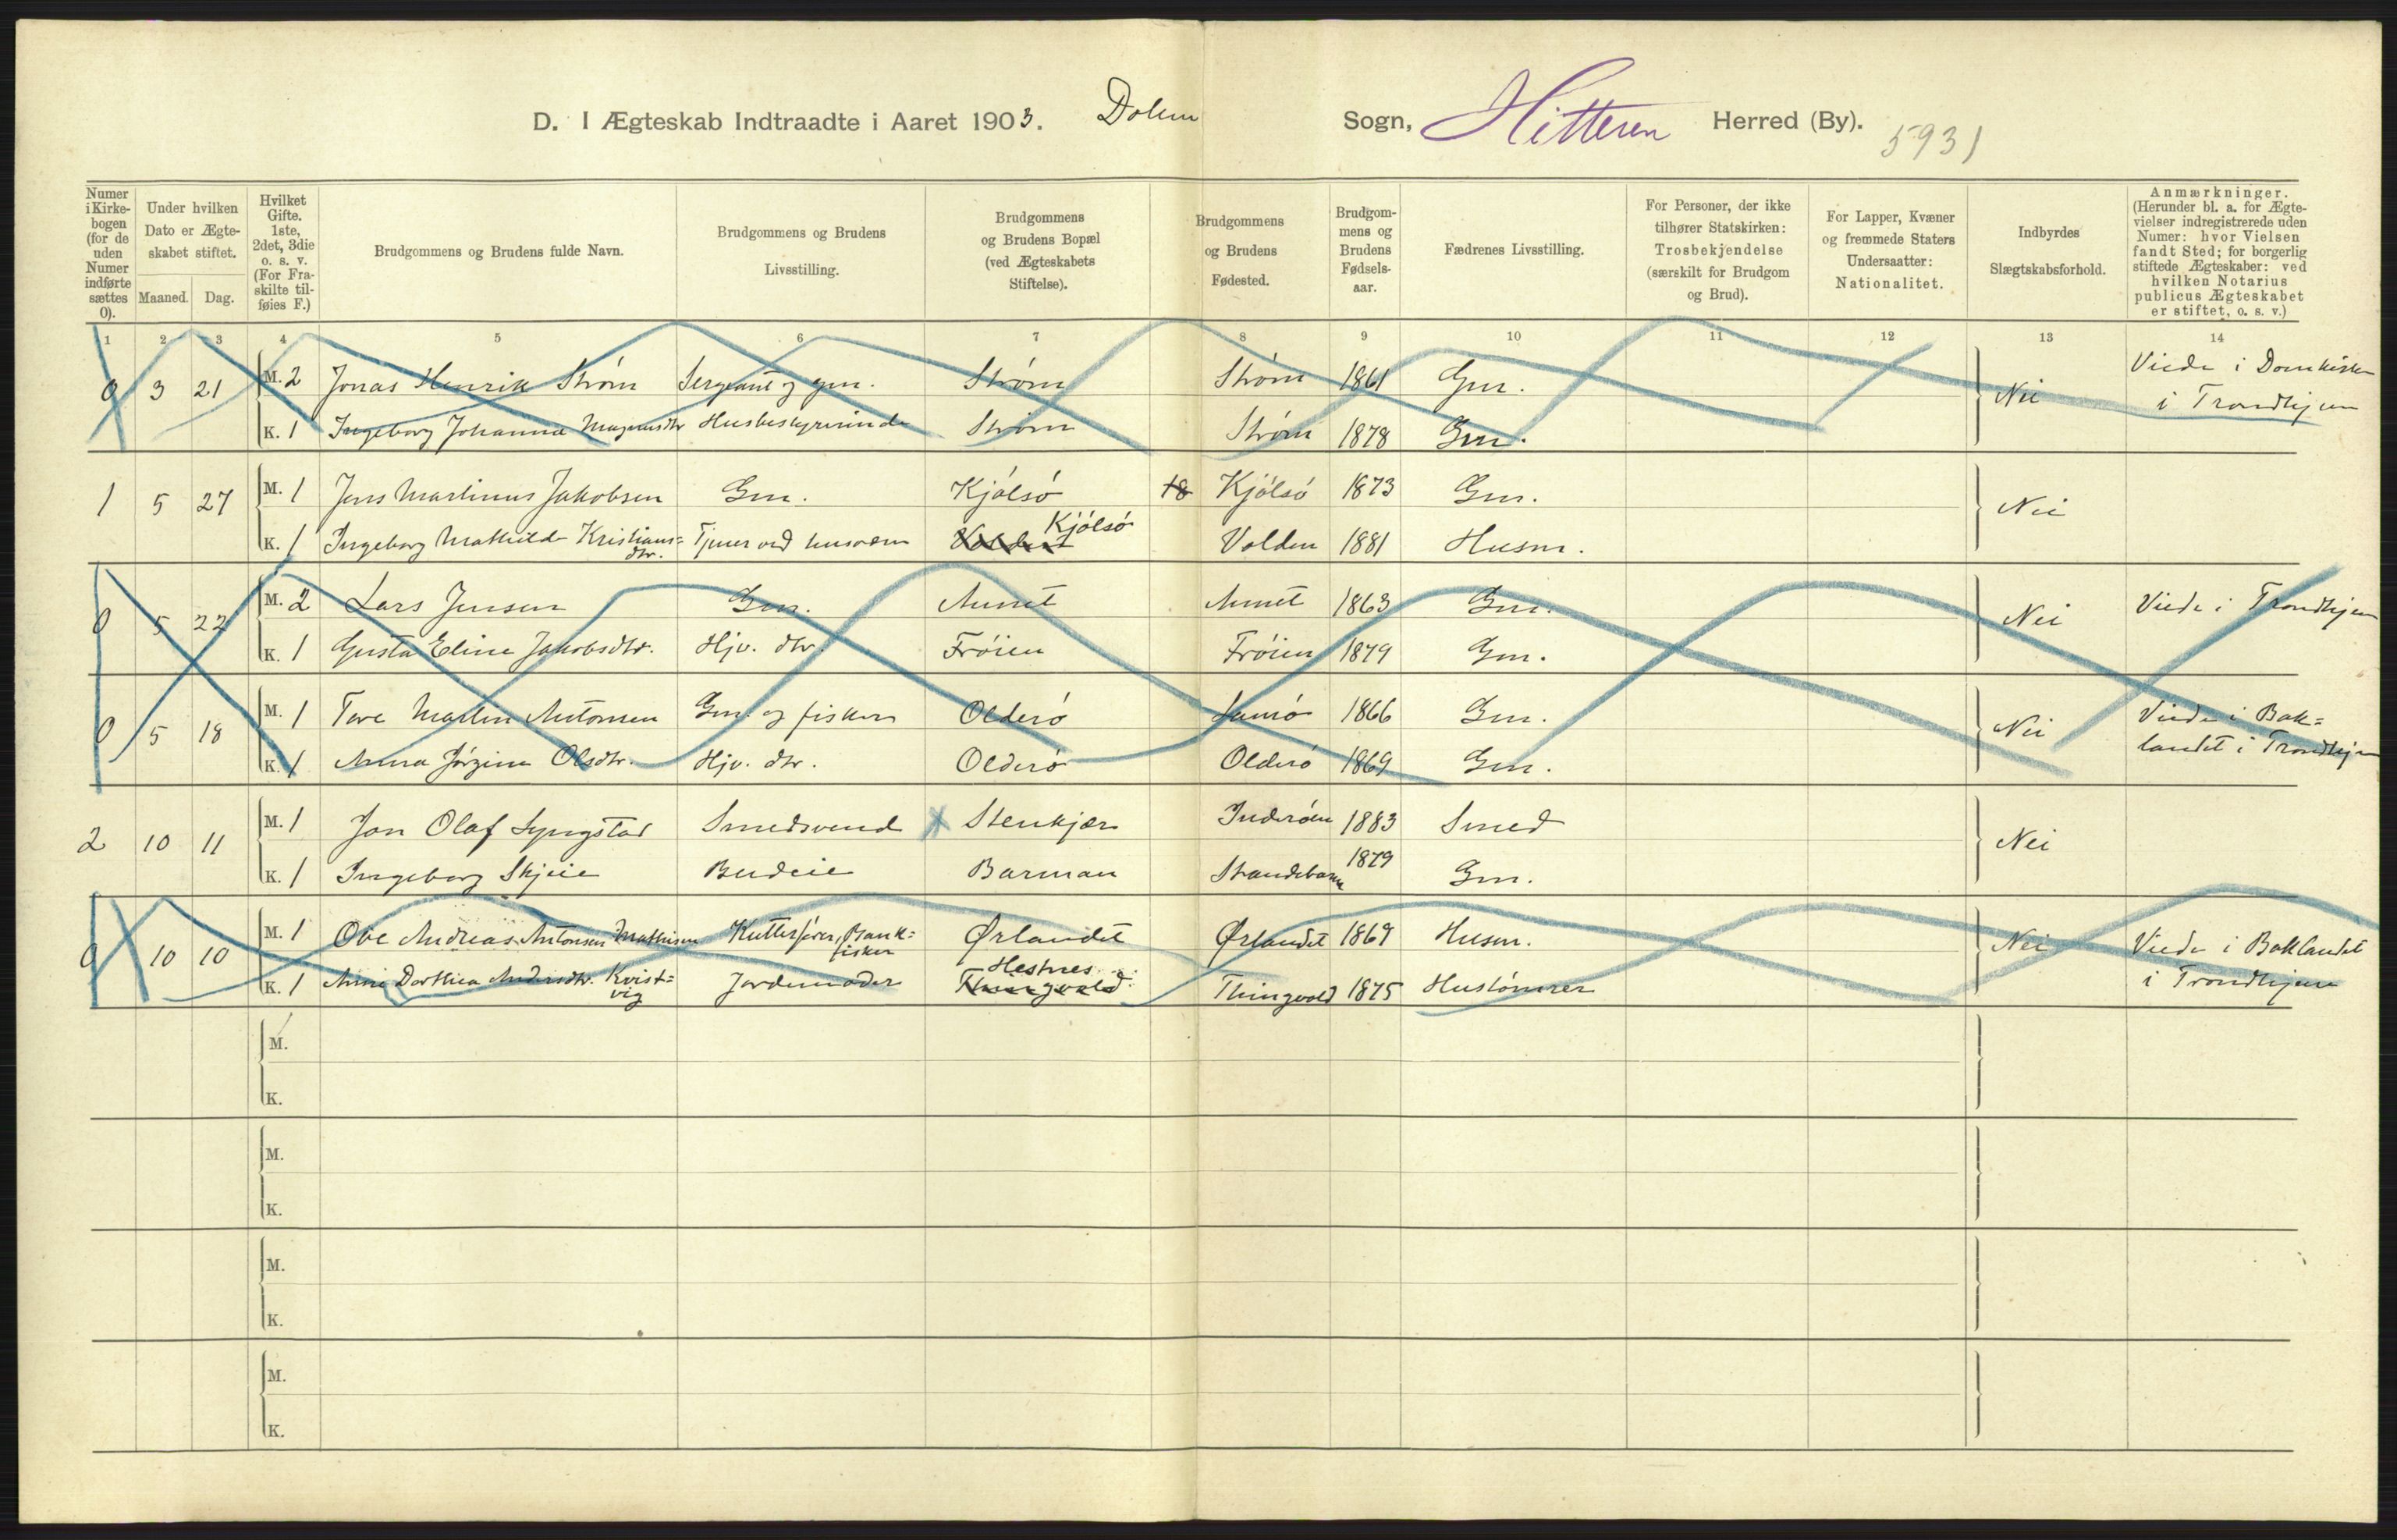 D. I Ægteskab Indtraadte i Aaret 1903. Dolm Sogn, Hitteren Herred (By). 5931
Numer i Kirkebogen (for de uden Numer indførte sættes 0).
Under hvilken Dato er Ægteskabet stiftet.
Maaned. Dag.
Hvilket Gifte. 1ste, 2det, 3die o. s. v. (For Fraskilte tilføies F.)
Brudgommens og Brudens fulde Navn.
Brudgommens og Brudens Livsstilling.
Brudgommens og Brudens Bopæl (ved Ægteskabets Stiftelse).
Brudgommens og Brudens Fødested.
Brudgommens og Brudens Fødselsaar.
Fædrenes Livsstilling.
For Personer, der ikke tilhører Statskirken: Trosbekjendelse (særskilt for Brudgom og Brud).
For Lapper, Kvæner og fremmede Staters Undersaatter: Nationalitet.
Indbyrdes Slægtskabsforhold.
Anmærkninger. (Herunder bl. a. for Ægtevielser indregistrerede uden Numer: hvor Vielsen fandt Sted; for borgerlig stiftede Ægteskaber: ved hvilken Notarius publicus Ægteskabet er stiftet, o. s. v.)
1 2 3 4 5 6 7 8 9 10 11 12 13 14
0 3 21 M. 2 Jonas Henrik Strøm Sergeant og gm. Strøm Strøm 1861 Gm. Nei Viede i Domkirken i Trondhjem
K. 1 Ingeborg Johanna Magnusdtr Husbestyrerinde Strøm Strøm 1878 Gm.
1 5 27 M. 1 Jens Martinus Jakobsen Gm. Kjölsö 18 Kjölsö 1873 Gm. Nei
K. 1 Ingeborg Mathilde Kristiansdtr. Tjener ved husvæsen Kjölsö Volden 1881 Husm.
0 5 22 M. 2 Lars Jensen Gm. Aunet Aunet 1863 Gm. Nei Viede i Trondhjem
K. 1 Gusta Eline Jakobsdtr. Hjv. dtr. Fröien Fröien 1879 Gm.
0 5 18 M. 1 Tore Martin Antonsen Gm. og fisker Olderö 1866 Gm. Nei Viede i Baklandet i Trondhjem
K. 1 Anna Jörgine Olsdtr. Hjv. dtr. Olderö Olderö 1869 Gm.
2 10 11 M. 1 Jon Olaf Lyngstad Smedsvend x Stenkjær Inderöen 1883 Smed Nei
K. 1 Ingeborg Skjeie Budeie Barman Strandebarm 1879 Gm.
0 10 10 M. 1 Ove Andreas Antonsen Mathisen Kutterfører, Bankfisker Ørlandet Ørlandet 1869 Husm. Nei Viede i Baklandet i Trondhjem
K. 1 Anne Dorthea Andersdtr. Kvistvig Jordemoder Hestnes Thingvold Thingvold 1875 Hustömrer
M.
K.
M.
K.
M.
K.
M.
K.